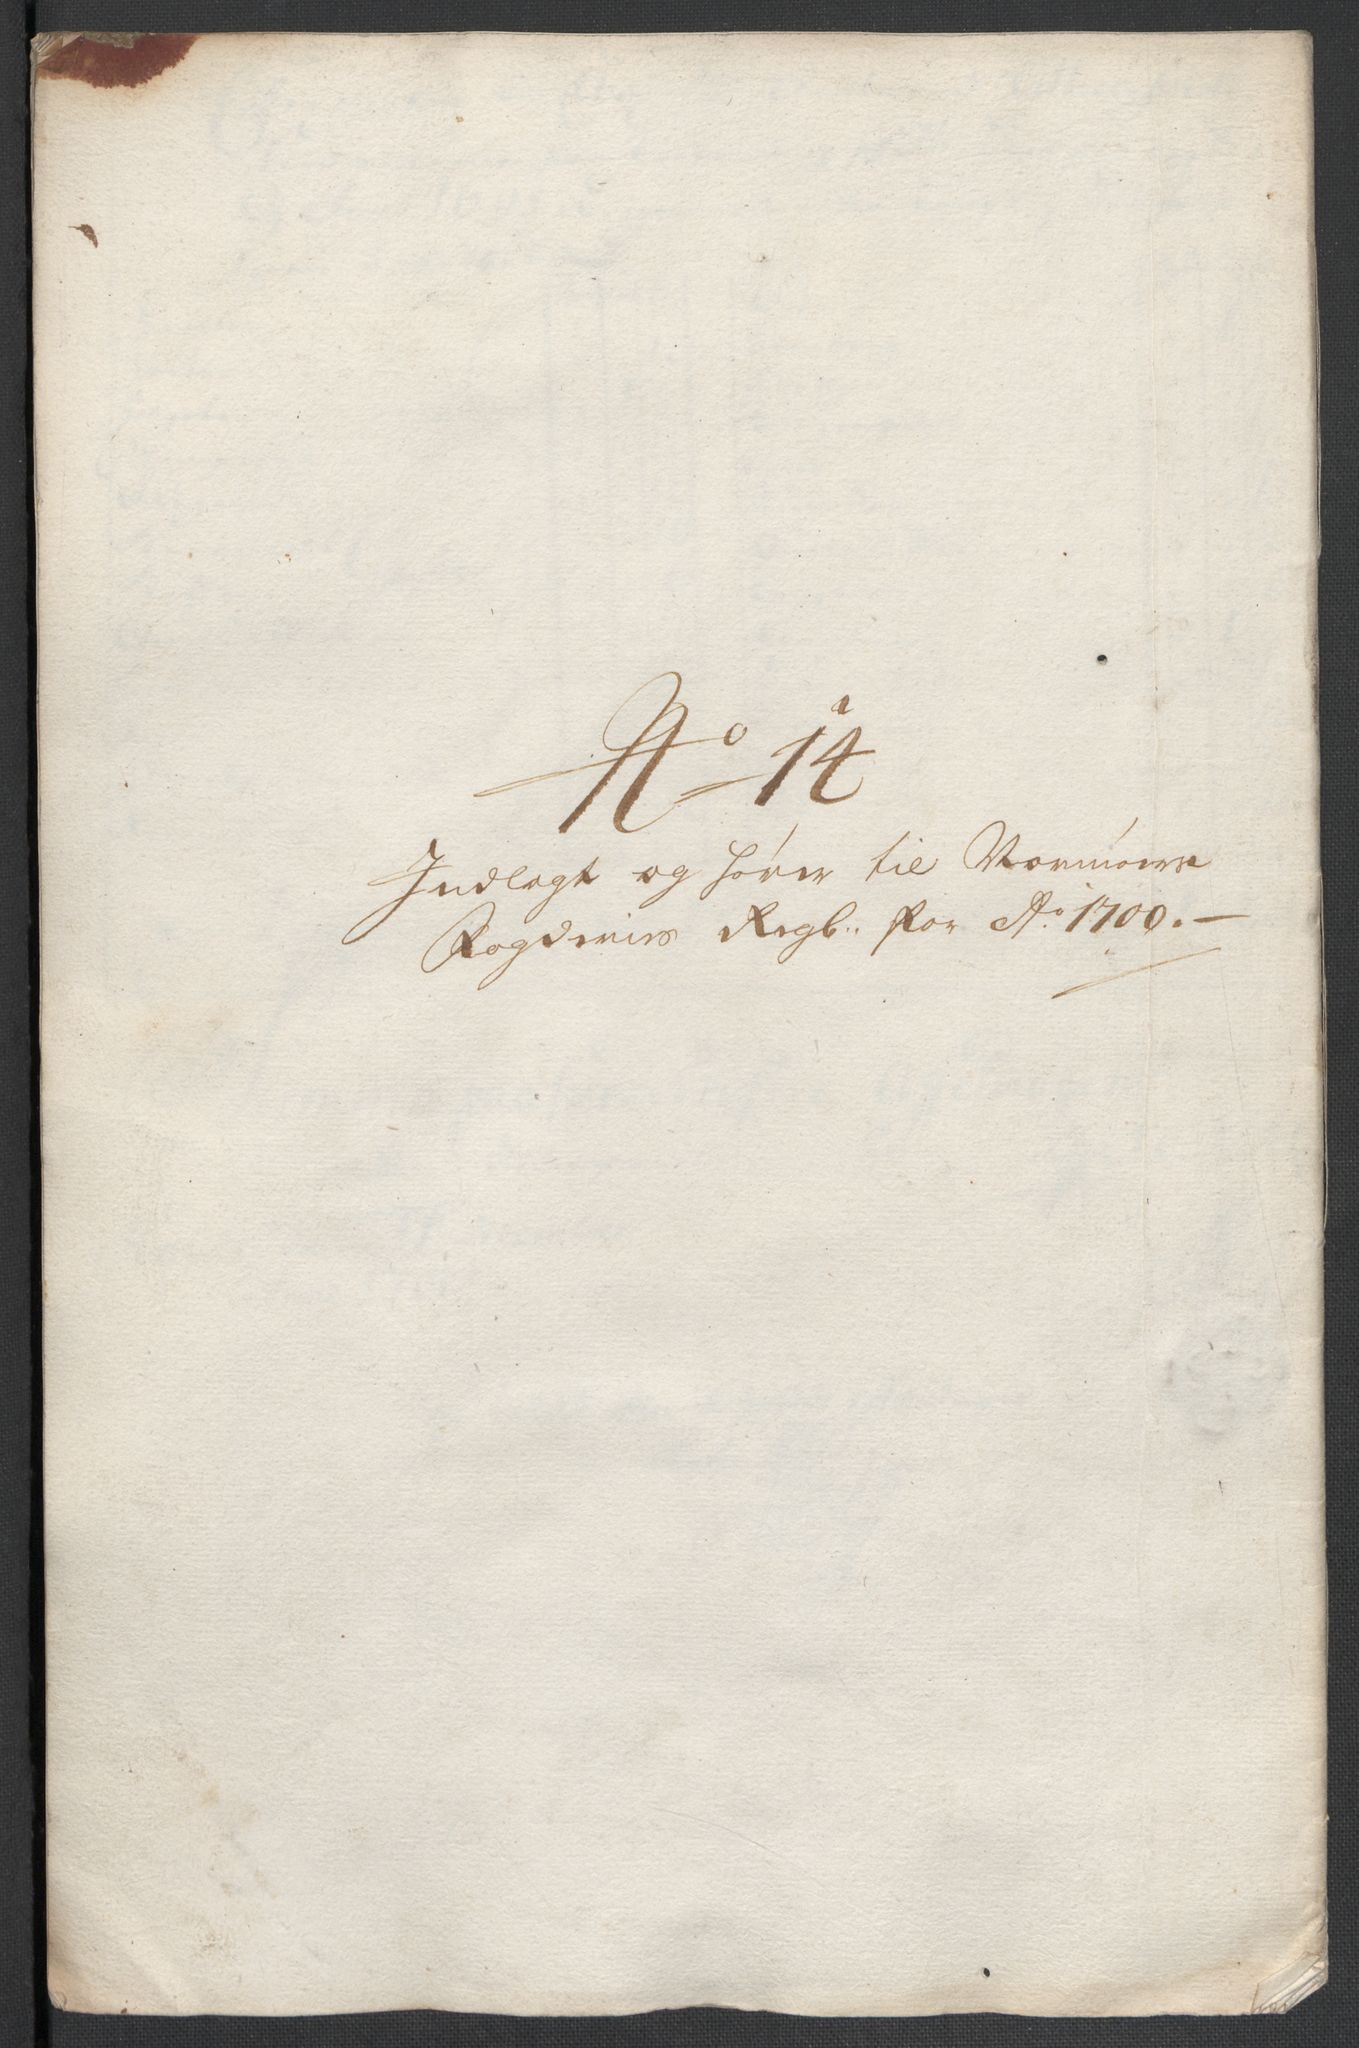 No 14
Indlagt og hører til Normøers
Fogderies Regb: for Ao 1700.—